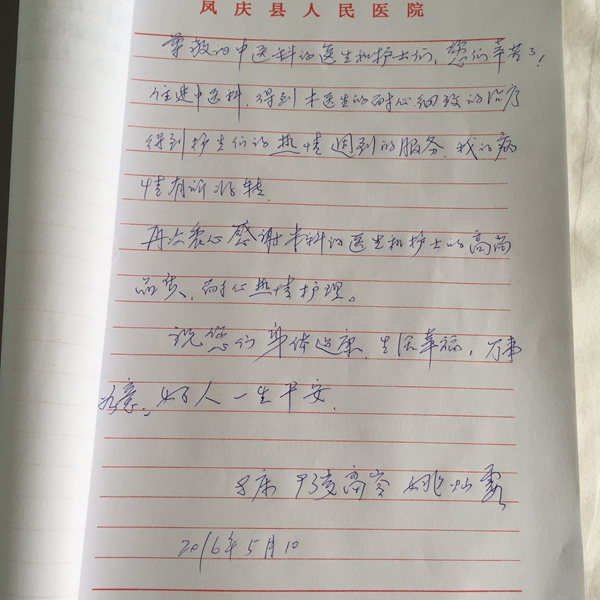 凤庆县人民医院
尊敬的中医科的医生和护士们,您们辛苦了!
住进中医科,得到本医生的耐心细致的治疗
得到护士们的热情周到的服务,我的病
情有所好转,
再次衷心感谢本科的医生和护士的高尚
品质,耐心热情护理。
祝您们身体健康,生活幸福,万事
如意,好人一生平安,
床 高 姚灿
2016年5月10